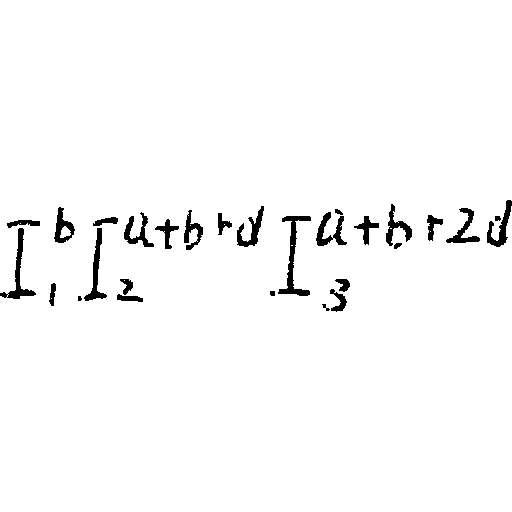 I_1^b I_2^{a+b+d} I_3^{a+b+2d}